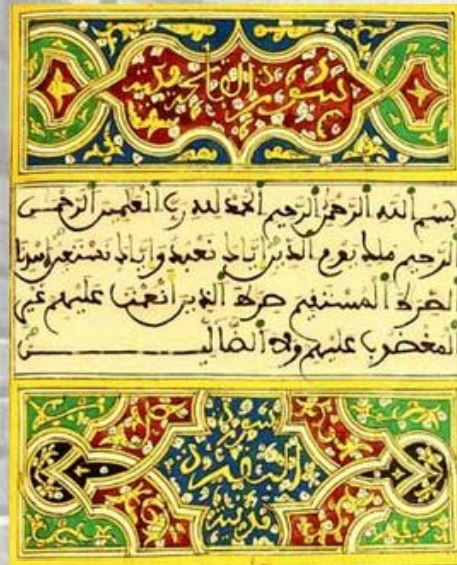 سورة الفاتحة مكية
بسم الله الرحمن الرحيم الحمد لله رب العلمين الرحمن
الرحيم ملك يوم الدين اياك نعبد واياك نستعين اهدنا
الصراط المستقيم صراط الذين انعمت عليهم غير
المغضوب عليهم ولا الضالين
سورة
البقرة
مدنية